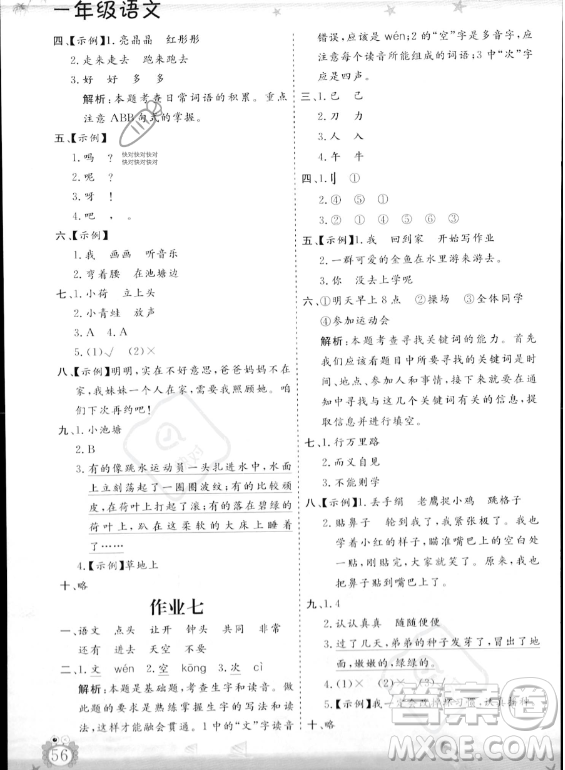 一年级语文
四、【示例】1.亮晶晶 红彤彤
2.走来走去 跑来跑去
3.好 好 多 多
解析:本题考查日常词语的积累。重点
注意 ABB 句式的掌握。
五、【示例】
1.吗 ?
2.呢 ?
3.呀 !
4.吧 , 。
快对快对快对
快对快对快对
六、【示例】
1.我 画画 听音乐
2.弯着腰 在池塘边
七、1.小荷 立上头
2.小青蛙 放声
3.A 4.A
5.(1)√ (2)×
八、【示例】明明,实在不好意思,爸爸妈妈不在
家,我妹妹一个人在家,我需要照顾她。咱
们下次再约吧!
九、1.小池塘
2.B
3.有的像跳水运动员一头扎进水中,水面
上立刻荡起了一圈圈波纹;有的比较顽
皮,在荷叶上打起了滚;有的落在碧绿的
荷叶上,趴在这柔软的大床上睡着
了……
4.【示例】草地上
十、略
作业七
一、语文 点头 让开 钟头 共同 非常
还有 进去 天空 不要
二、1.文 wén 2.空 kōng 3.次 cì
解析:本题是基础题,考查生字和读音。做
题的要求是熟练掌握生字的书写和读音的读
法,这样才能融会贯通。1中的“文”字读音
错误,应该是 wén;2中的“空”字是多音字,
应注意每个读音所能组成的词语;3中“次”字
应是四声。
三、1.已 己
2.刀 力
3.人 入
4.午 牛
四、1.①
2.④ ⑤ ①
3.② ① ③ ④ ⑤
五、【示例】1.我 回到家 开始写作业
2.一群可爱的金鱼在水里游来游去。
3.你 没去上学呢
六、①明天早上8点 ②操场 ③全体同学
④参加运动会
解析:本题考查寻找关键词的能力。首先
我们应该看题干要求,题干中要求寻找时
间、地点、参加人和事情,接下来就在通
知中寻找与这几个关键词有关的信息,提
取信息并进行填空。
七、1.行万里路
2.而义自见
3.不能则学
八、【示例】1.丢手绢 老鹰捉小鸡 跳格子
2.贴鼻子 轮到我了,我
着小红的样子,瞄准嘴巴
一点,刚贴完,大家就笑了。原来,我
把鼻子贴到嘴巴上了。
九、1.4
2.认认真真 随随便便
3.过了几天,弟弟的种子发芽了,钻出了地
面,嫩嫩的,绿绿的。
4.【示例】我
十、略
56
答案圈
MXQE.COM